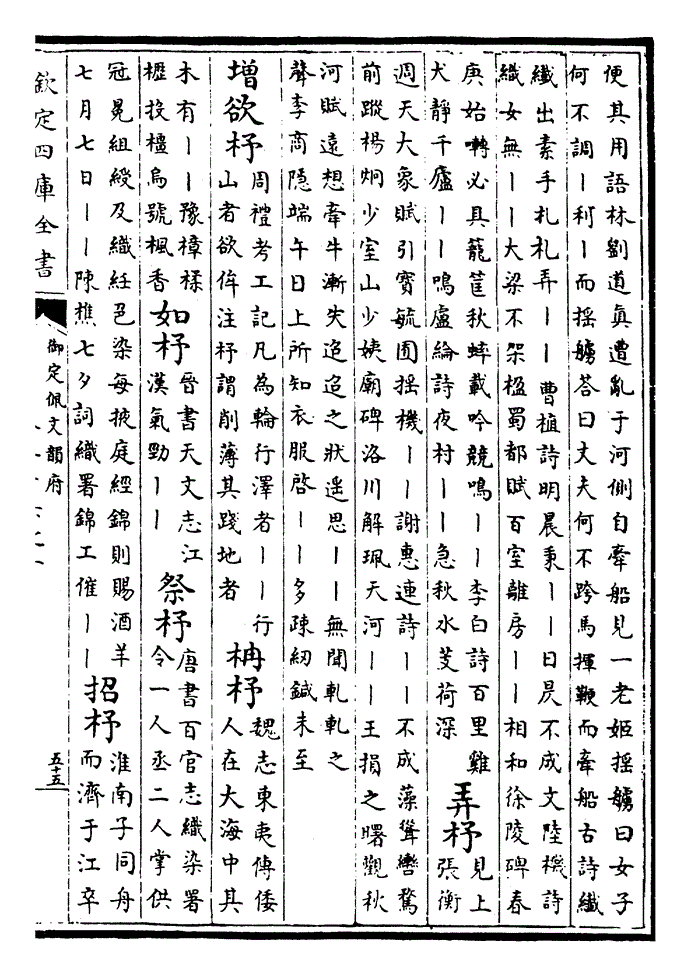 便其用語林劉道真遭亂于河側自牽船見一老姬揺艣曰女子
何不調丨利丨而揺艣荅曰丈夫何不跨馬揮鞭而牽船古詩纎
纎出素手札札弄丨丨曹植詩明晨秉丨丨日昃不成文陸機詩
織女無丨丨大梁不架楹蜀都賦百室離房丨丨相和徐陵碑春
庚始囀必具籠筐秋蟀載吟競鳴丨丨李白詩百里雞
犬靜千廬丨丨鳴盧綸詩夜村丨丨急秋水芰荷深
弄杼
見上
張衡
週天大象賦引寳毓囿揺機丨丨謝惠連詩丨丨不成藻聳轡騖
前蹤楊炯少室山少姨廟碑洛川解珮天河丨丨王損之曙觀秋
河賦遠想牽牛漸失迢迢之狀遥思丨丨無聞軋軋之
聲李商隱端午日上所知衣服啓丨丨多疎紉鍼未至
増欲杼
周禮考工記凡為輪行澤者丨丨行
山者欲侔注杼謂削薄其踐地者
柟杼
魏志東夷傳倭
人在大海中其
木有丨丨豫樟楺
櫪投橿烏號楓香
如杼
晉書天文志江
漢氣勁丨丨
祭杼
唐書百官志織染署
令一人丞二人掌供
冠冕組綬及織紝色染每掖庭經錦則賜酒羊
七月七日丨丨陳樵七夕詞織署錦工催丨丨
招杼
淮南子同舟
而濟于江卒
欽定四庫全書
御定佩文韻府
五十五